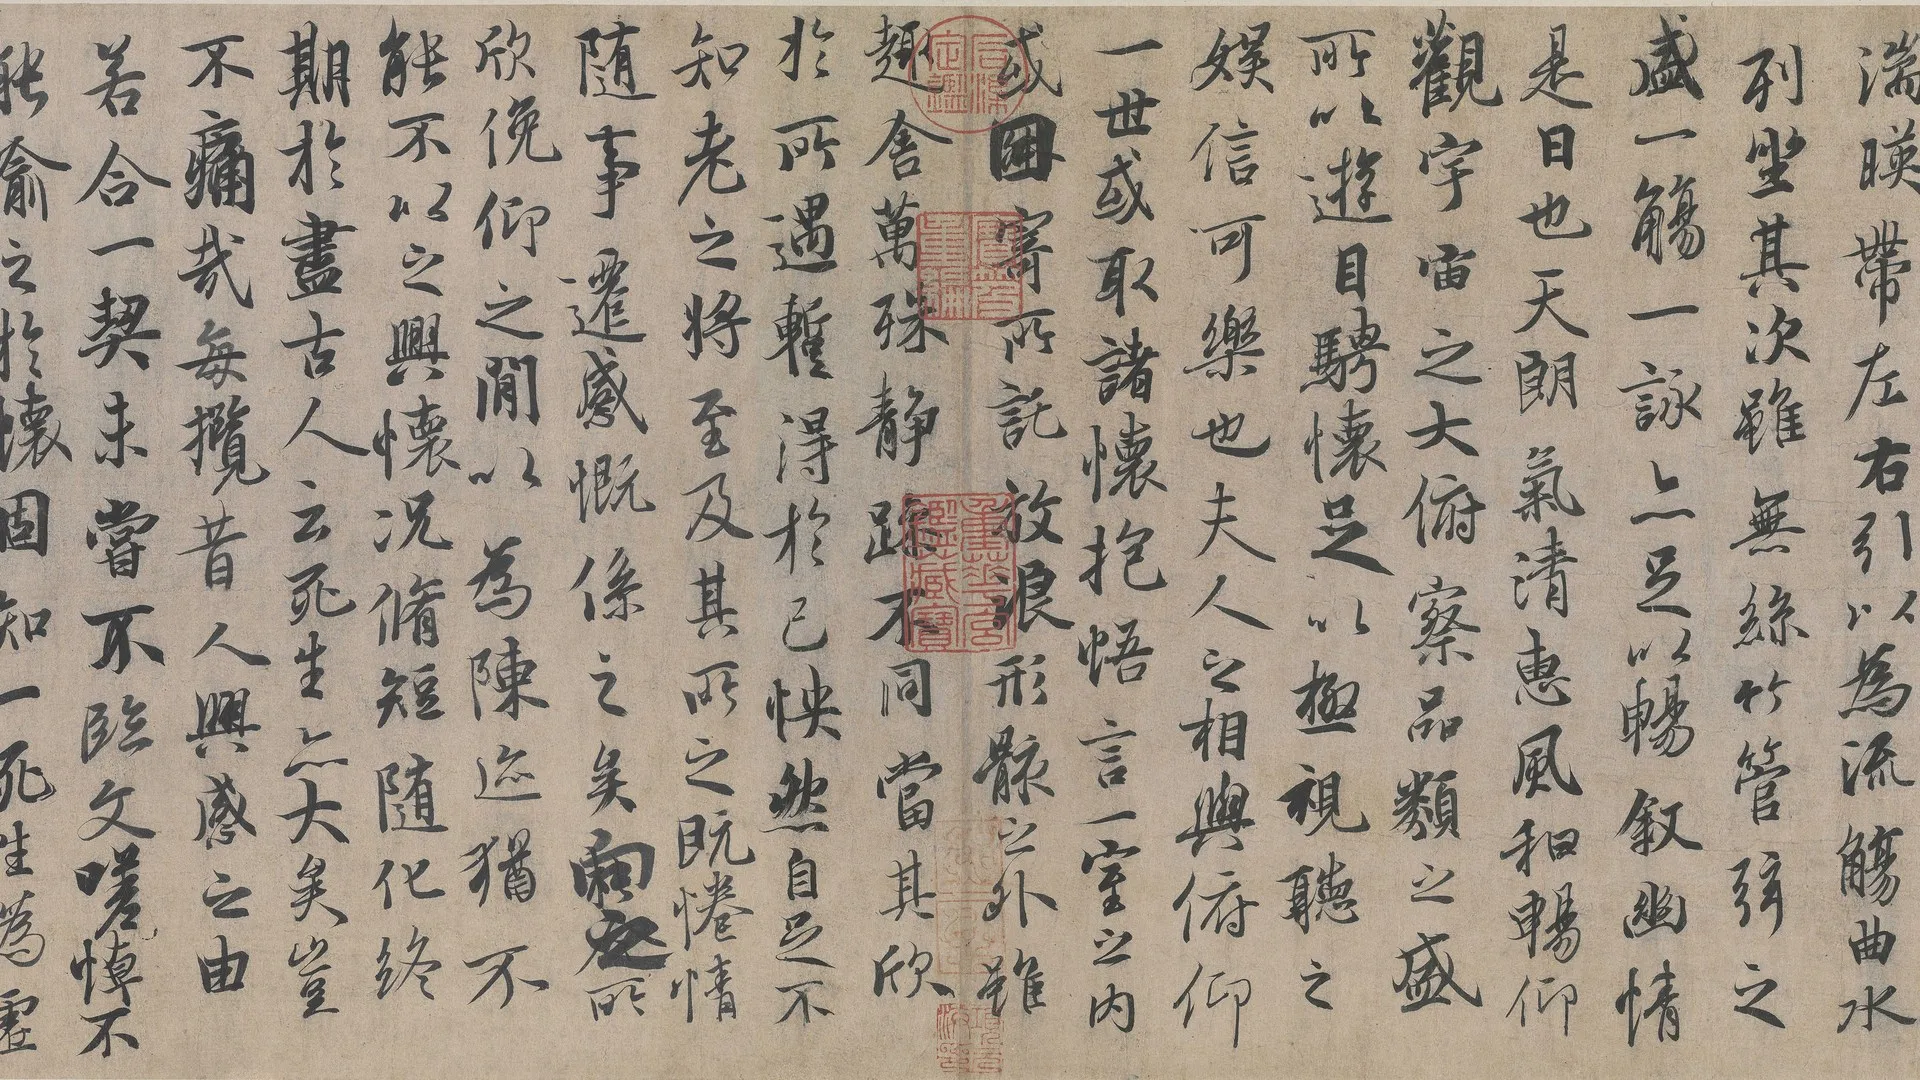 湍暎帶左右引以為流觴曲水
列坐其次雖無絲竹管弦之
盛一觴一詠亦足以暢叙幽情
是日也天朗氣清惠風和暢仰
觀宇宙之大俯察品類之盛
所以遊目騁懷足以極視聽之
娛信可樂也夫人之相與俯仰
一世或取諸懷抱悟言一室之內
或因寄所託放浪形骸之外雖
趣舍萬殊静躁不同當其欣
於所遇暫得於己怏然自足不
知老之將至及其所之既惓情
随事遷感慨係之矣向之所
欣俛仰之閒以為陳迹猶不
能不以之興懷況脩短隨化終
期於盡古人云死生亦大矣豈
不痛哉每攬昔人興感之由
若合一契未嘗不臨文嗟悼不
能喻之於懷固知一死生為虛